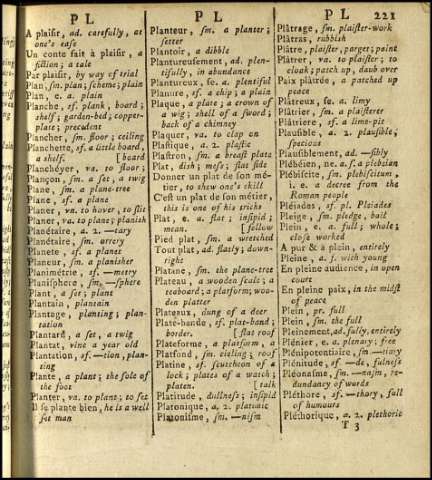 P L
A plaisir, ad. carefully, at
one's ease
Un conte fait à plaisir, a
fiction; a tale
Par plaisir, by way of trial
Plan, sm. plan; scheme; plain
Plan, e. a. plain
Planche, sf. plank, board;
shelf; garden-bed; copper-
plate; precudent
Plancher, sm. floor; ceiling
Planchette, sf. a little board,
a shelf. [board
Planchéyer, va. to floor;
Plançon, sm. a set, a twig
Plane, sm. a plane-tree
Plane, sf. a plane
Planer, va. to hover, to slit
Planer, va. to plane; planish
Planétaire, a. 2. —tary
Planétaire, sm. orrery
Planete, sf. a planet
Planeur, sm. a planisher
Planimétrie, sf. —metry
Planisphere, sm. —sphere
Plant, a set; plant
Plantain, planeain
Plantage, planting; plan-
tation
Plantard, a set, a twig
Plantat, vine a year old
Plantation, sf. —tion, plan-
ting
Plante, a plant; the sole of
the foot
Planter, va. to plant; to set
Il se plante bien, he is a well
set man
P L
Planteur, sm. a planter;
setter
Plantoir, a dibble
Plantureusement, ad. plen-
tifully, in abundance
Plantureux, se. a. plentiful
Planure, sf. a chip; a plain
Plaque, a plate; a crown of
a wig; shall of a sword;
back of a chimney
Plaquer, va. to clap on
Plastique, a. 2. plastic
Plastron, sm. a breast plate
Plat, dish; mess; flat side
Donner un plat de son mé-
tier, to shew one's skill
C'est un plat de son métier,
this is one of his tricks
Plat, e. a. flat; insipid;
mean. [fellow
Pied plat, sm. a wretched
Tout plat, ad. flatly; down-
right
Platane, sm. the plane-tree
Plateau, a wooden scale; a
teaboard; a platform; woo-
den platter
Plateaux, dung of a deer
Plate-bande, sf. plat-band;
border. [flat roof
Plateforme, a platform, a
Platfond, sm. cieling; roof
Platine, sf. scutcheon of a
lock; plates of a watch;
platen. [talk
Platitude, dullness; insipid
Platonique, a. 2. platonic
Platonisme, sm. —nism
P L 221
Plâtrage, sm. plaister-work
Plâtras, rubbish
Plâtre, plaister, parget; paint
Plâtrer, va. to plaister; to
cloak; patch up, daub over
Paix plâtrée, a patched up
peace
Plâtreux, se. a. limy
Plâtrier, sm. a plaisterer
Plâtriere, sf. a lime-pit
Plausible, a. 2. plausible;
specious
Plausiblement, ad. —sibly
Plébéien, e. a. sf. a plebeian
Plébiscite, sm. plebiscitum,
i. e. a decree from the
Roman people
Pléiades, sf. pl. Pleiades
Pleige, sm. pledge, bail
Plein, e. a. full; whole;
close worked
A pur & à plein, entirely
Pleine, a. f. with young
En pleine audience, in open
court
En pleine paix, in the midst
of peace
Plein, pr. full
Plein, sm. the full
Pleinement, ad. fully, entirely
Plénier, e. a. plenary; free
Plénipotentiaire, sm —tiary
Plénitude, sf. —de, fulness
Pléonasme, sm. —nasm, re-
dundancy of words
Pléthore, sf. —thory, full
of humours
Pléthorique, a. 2. plethoric
T 3